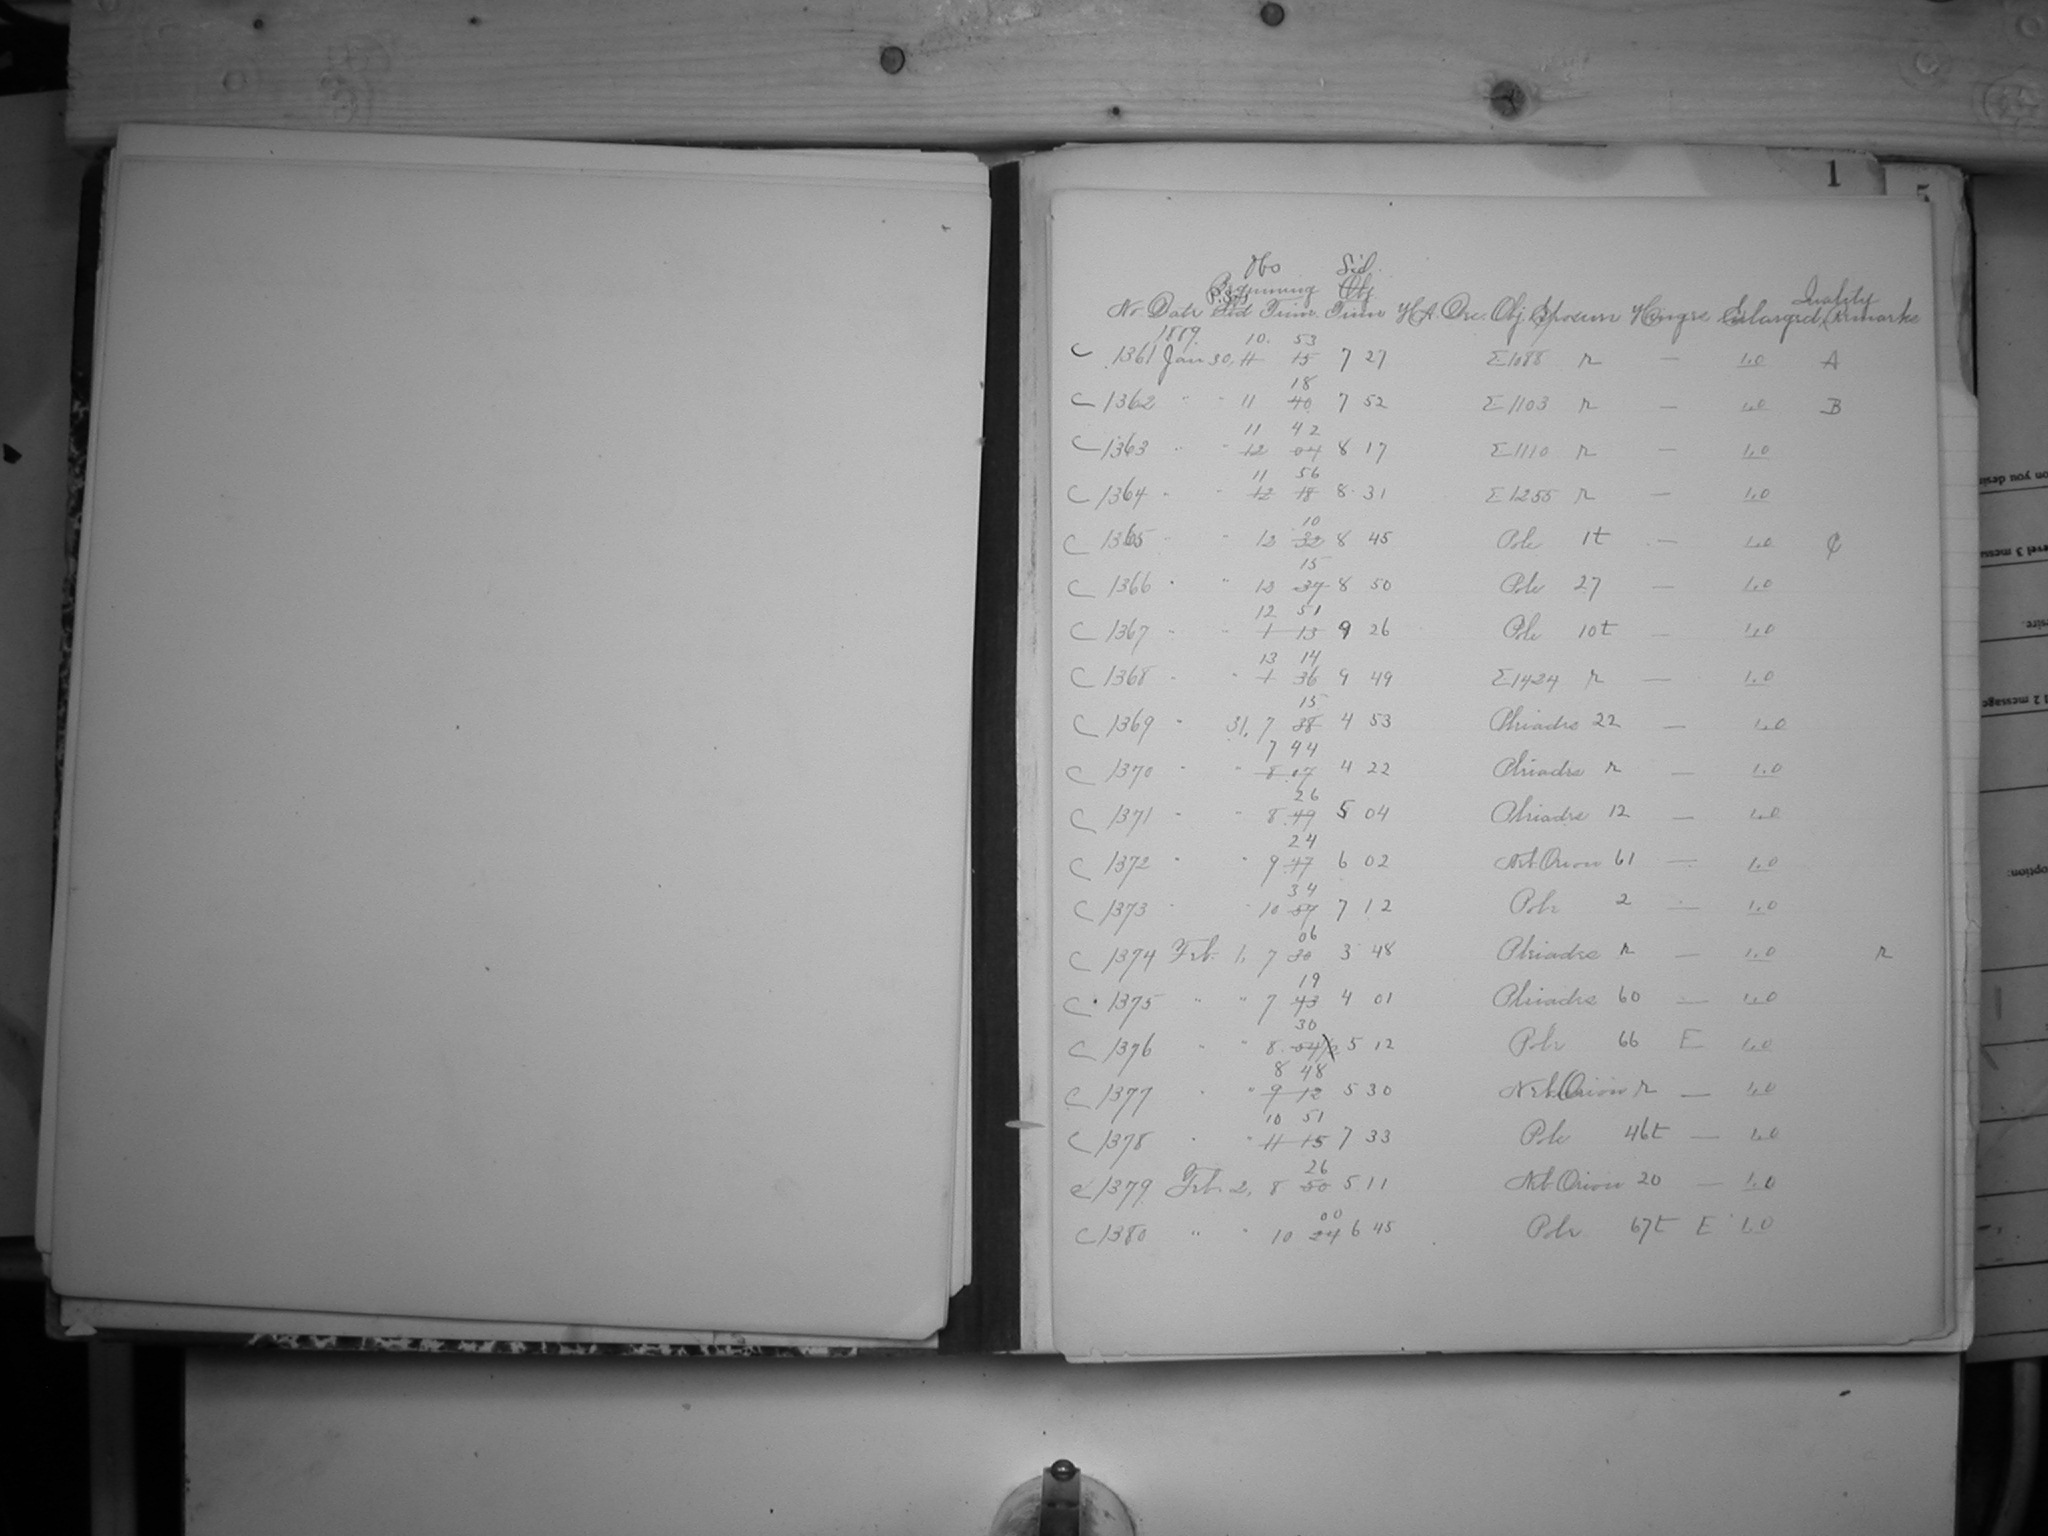 1
5
Obs Sid.
Beginning Obj
P.S.T. Quality
No. Date Sid Time. Time H.A. Dec. Obj. Exposure Hinge Enlarged Remarks
1889. 10. 53
C 1361 Jan 30, 11 15 7 27 Σ1088 r — 1.0 A
18
C 1362 " " 11 40 7 52 Σ1103 r — 1.0 B
11 42
C 1363 " " 12 04 8 17 Σ1110 r — 1.0
11 56
C 1364 " " 12 18 8 31 Σ1255 r — 1.0
10
C 1365 " " 12 32 8 45 Pole 1t — 1.0 C
15
C 1366 " " 12 37 8 50 Pole 27 — 1.0
12 51
C 1367 " " 1 13 9 26 Pole 10t — 1.0
13 14
C 1368 " " 1 36 9 49 Σ1424 r — 1.0
15
C 1369 " 31, 7 38 4 53 Pleiades 22 — 1.0
7 44
C 1370 " " 8 07 4 22 Pleiades r — 1.0
26
C 1371 " " 8 49 5 04 Pleiades 12 — 1.0
24
C 1372 " " 9 47 6 02 Neb. Orion 61 — 1.0
34
C 1373 " " 10 57 7 12 Pole 2 — 1.0
06
C 1374 Feb. 1, 7 30 3 48 Pleiades r — 1.0 r
19
C 1375 " " 7 43 4 01 Pleiades 60 — 1.0
30
C 1376 " " 8 54½ 5 12 Pole 66 E 1.0
8 48
C 1377 " " 9 12 5 30 Neb. Orion r — 1.0
10 51
C 1378 " " 11 15 7 33 Pole 46t — 1.0
26
C 1379 Feb. 2, 8 50 5 11 Neb. Orion 20 — 1.0
00
C 1380 " " 10 24 6 45 Pole 67t E 1.0
on you desire
level 3 messa
sire.
l 2 message
option: